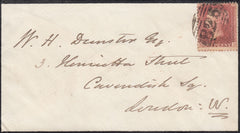 W. H. Dunster Esq.
3. Henrietta Street
Cavendish Sq.
London. W.